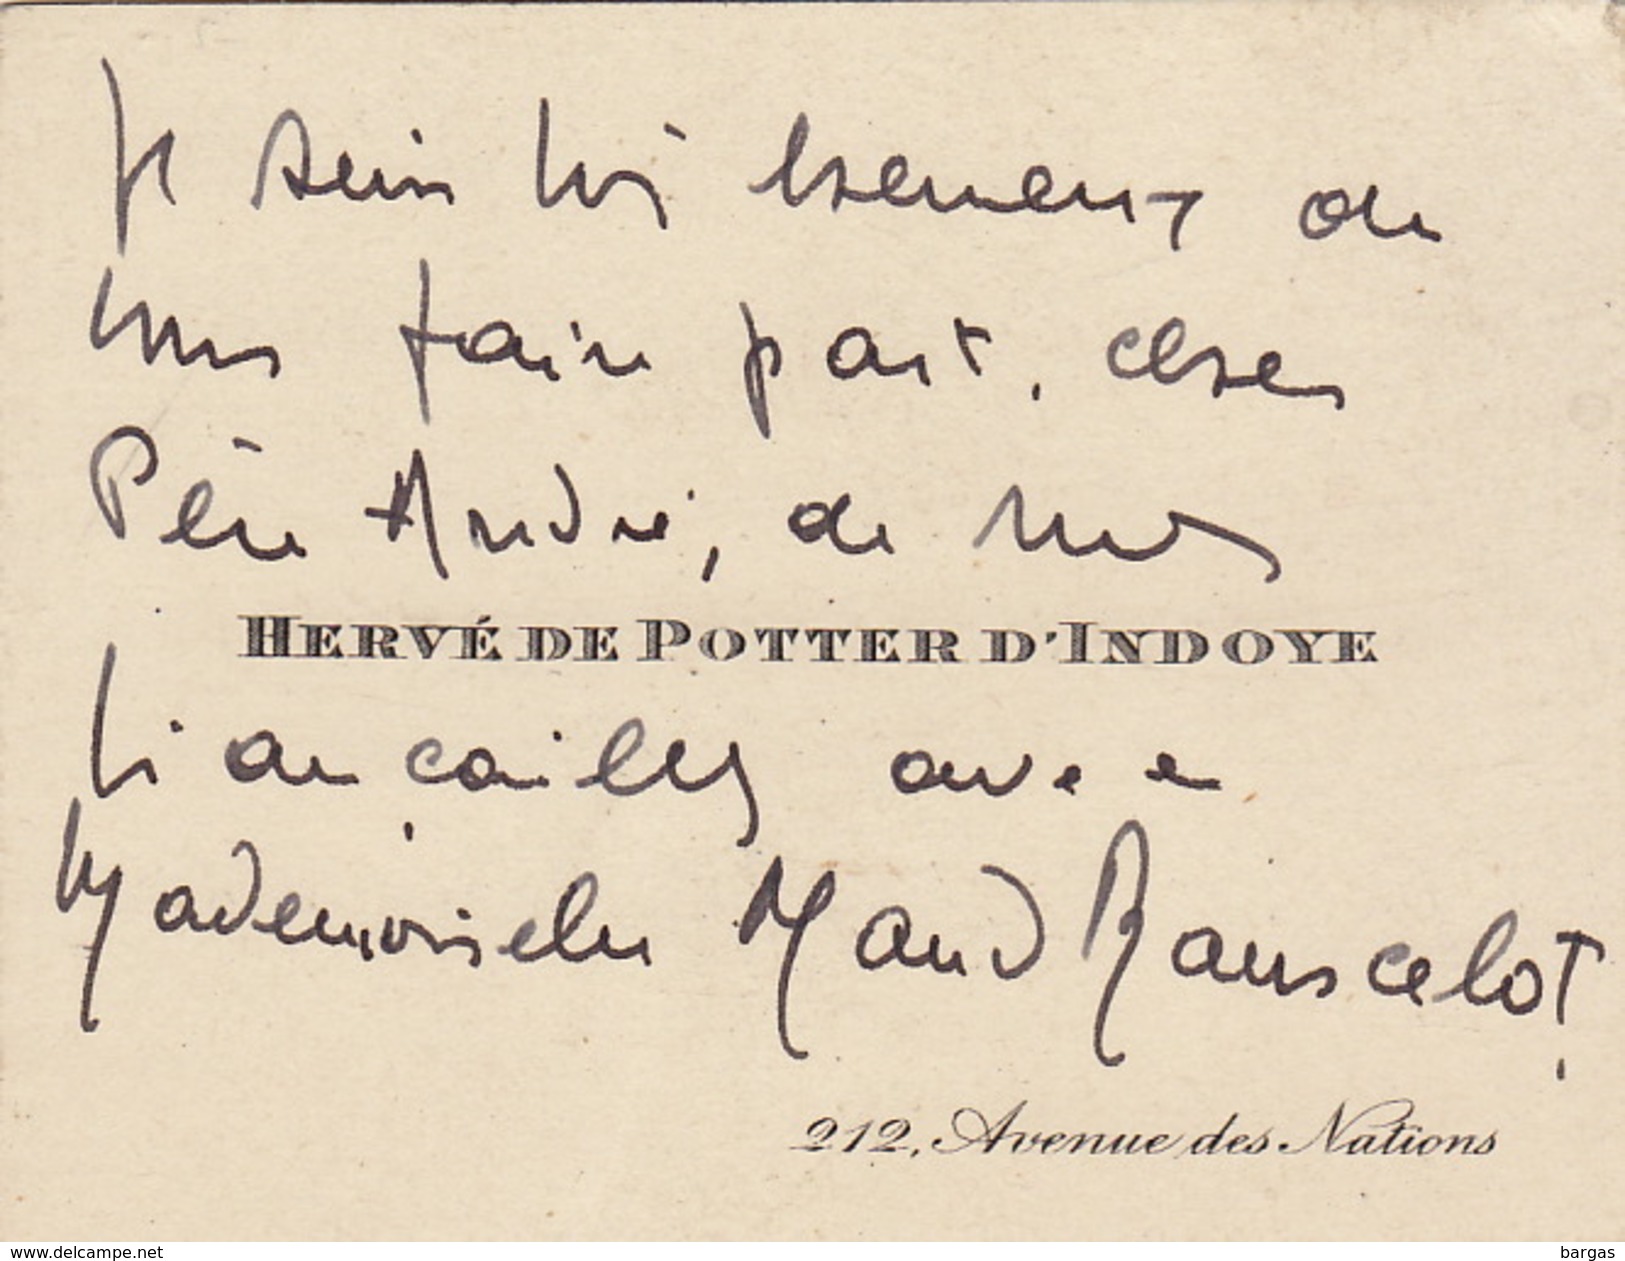 Je suis très heureux de
vous faire part, cher
Père André, de mes
HERVÉ DE POTTER D'INDOYE
fiançailles avec
Mademoiselle Maud Rauscelot
212, Avenue des Nations
www.delcampe.net
bargas